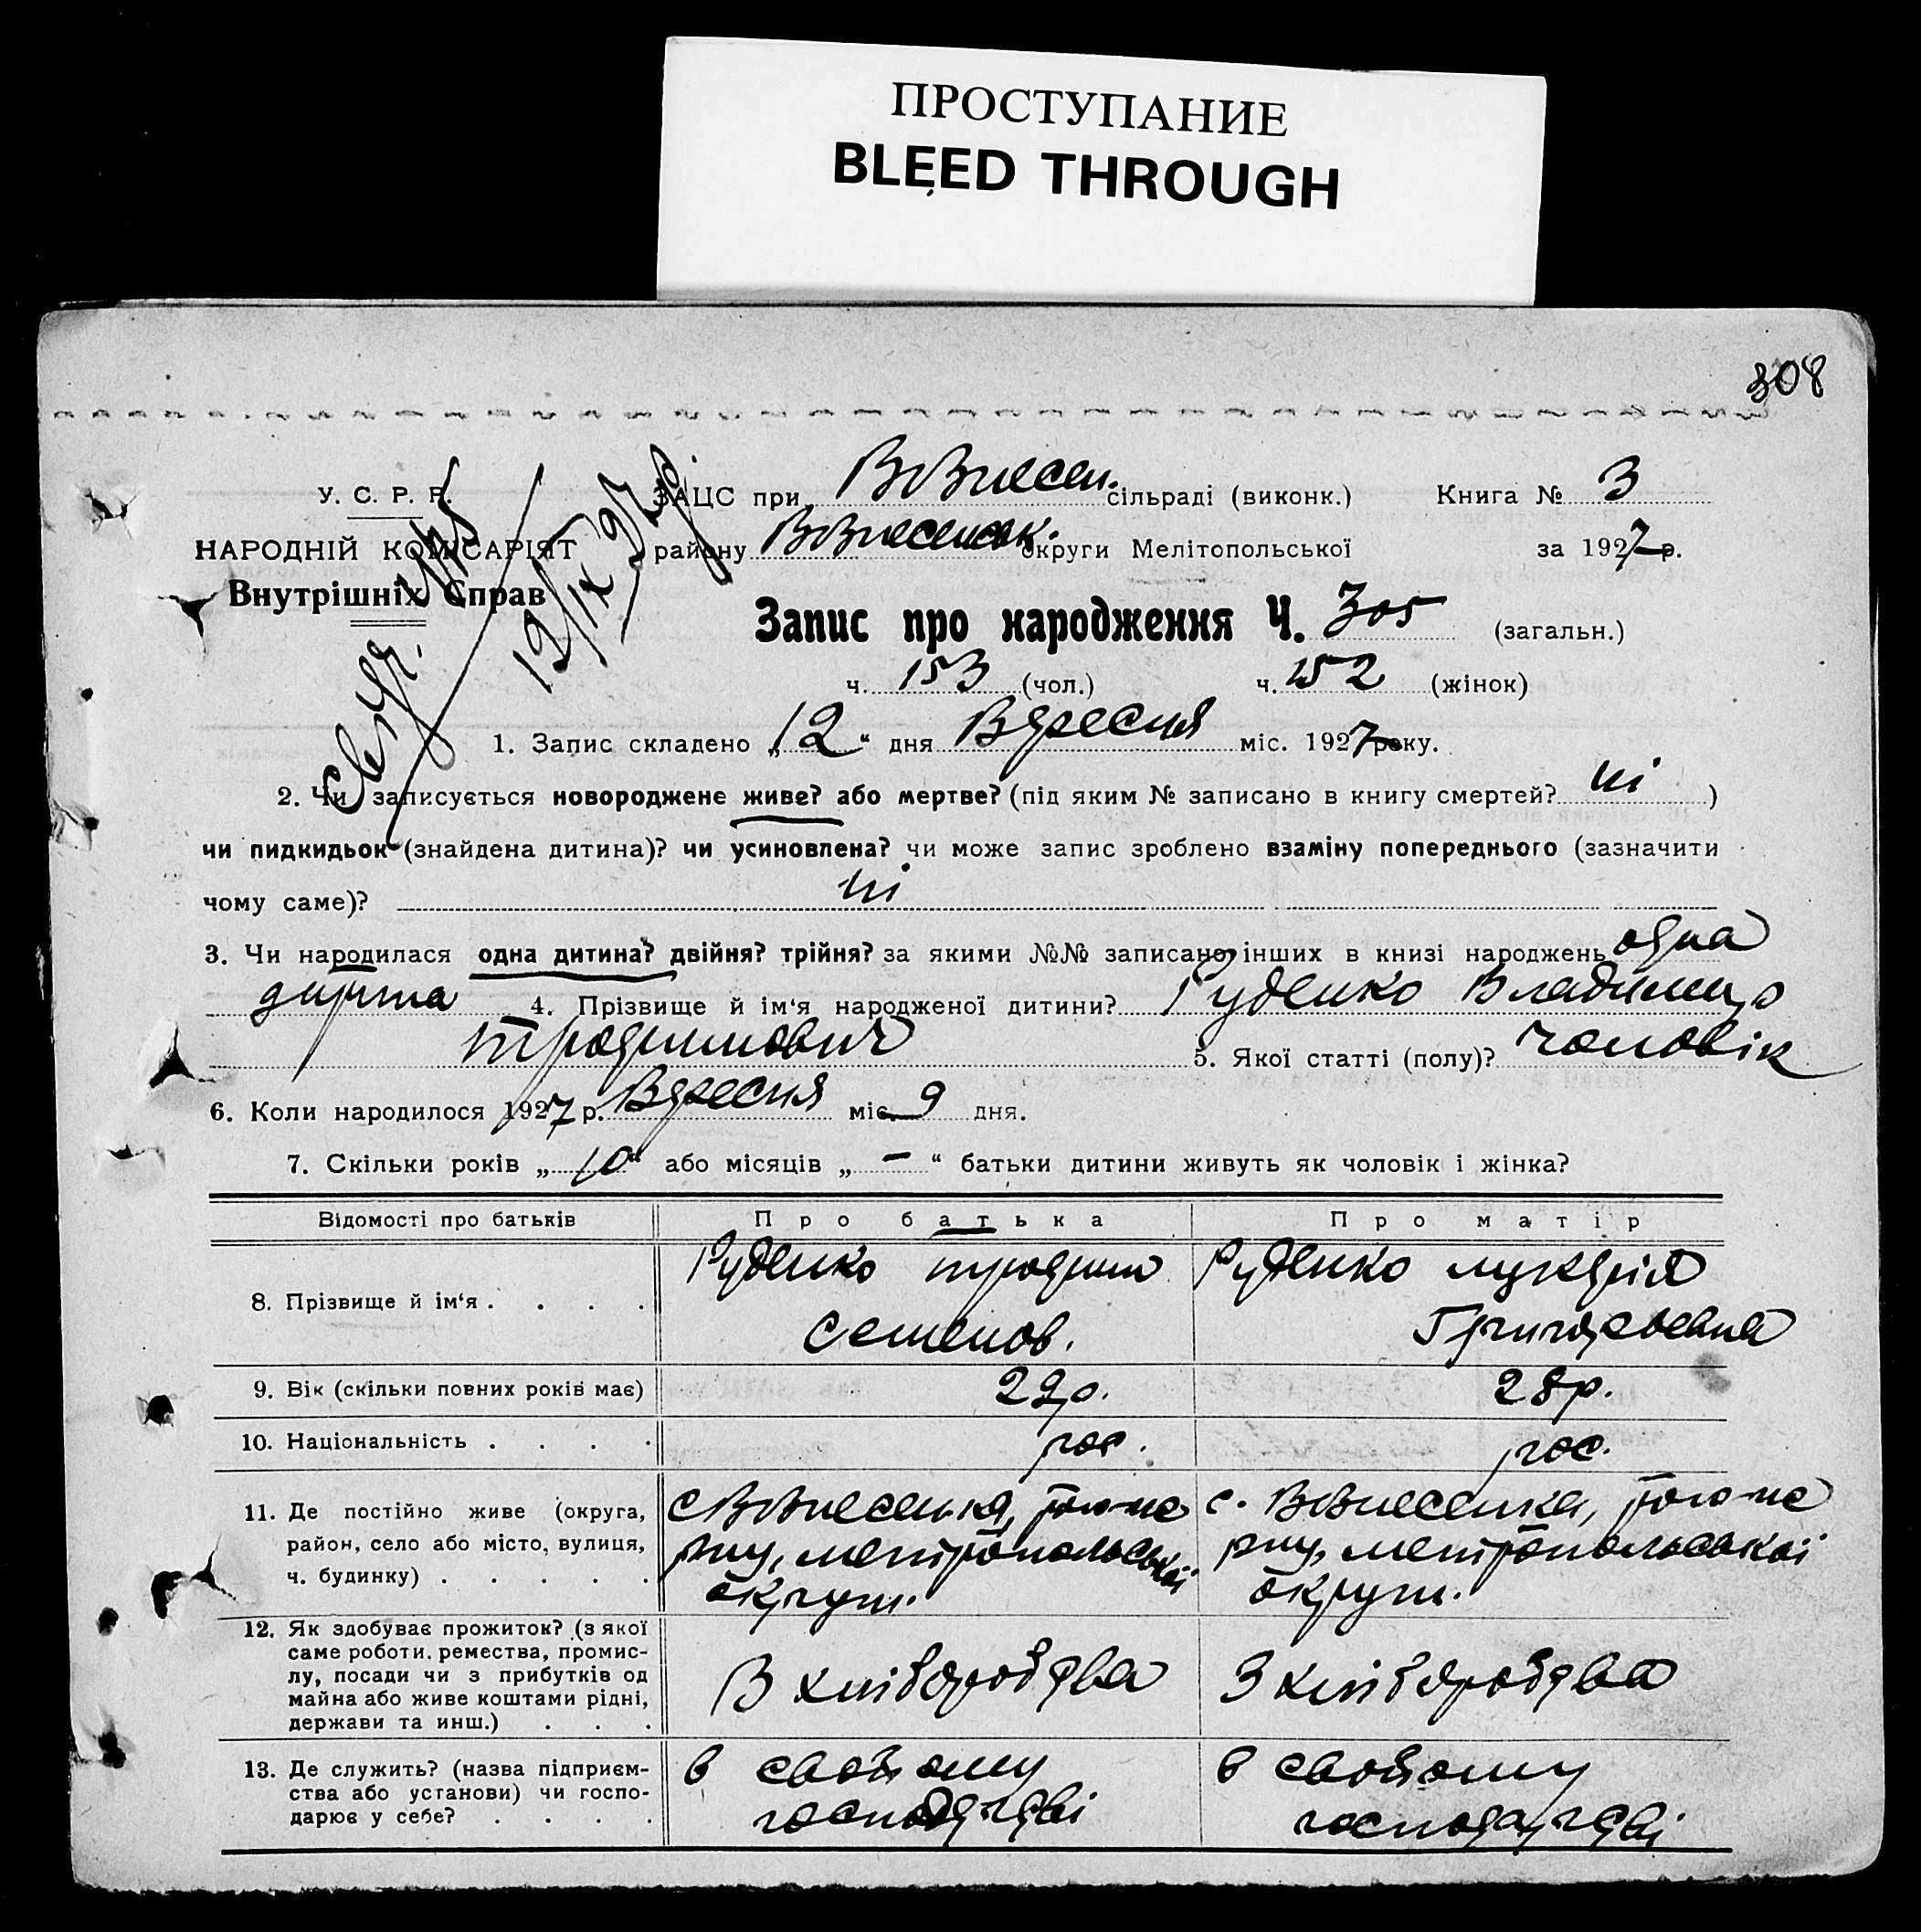 ПРОСТУПАНИЕ
BLEED THROUGH
308
У. С. Р. Р.
НАРОДНІЙ КОМІСАРІЯТ
Внутрішніх Справ
12/IX 927р.
ЗАЦС при ВВзнесен. сільраді (виконк.) Книга № 3
району ВВзнесенськ. округи Мелітопольської за 1927 р.
Запис про народження Ч. 305 (загальн.)
ч. 153 (чол.) ч. 152 (жінок)
1. Запис складено „ 12 “ дня Вересня міс. 1927 року.
2. Чи записується новороджене живе? або мертве? (під яким № записано в книгу смертей? ні )
чи пидкидьок (знайдена дитина)? чи усиновлена? чи може запис зроблено взаміну попереднього (зазначити
чому саме)? ні
3. Чи народилася одна дитина? двійня? трійня? за якими №№ записано інших в книзі народжень одна
дитина 4. Прізвище й ім‘я народженої дитини? Руденко Владимир
Трофимович 5. Якої статті (полу)? чоловік
6. Коли народилося 1927 р. Вересня міс. 9 дня.
7. Скільки років „ 10 “ або місяців „ – “ батьки дитини живуть як чоловік і жінка?
Відомості про батьків Про батька Про матір
8. Прізвище й ім‘я . . . . Руденко Трофим Руденко Лукерія
Семенов. Григорьевна
9. Вік (скільки повних років має) 29р. 28р.
10. Національність . . . . рос. рос.
11. Де постійно живе (округа, с ВВзнесенка, того-же с. ВВзнесенка, того-же
район, село або місто, вулиця, р-ну, мелітопольської р-ну, мелітопольської
ч. будинку) . . . . . округи. округи.
12. Як здобуває прожиток? (з якої
саме роботи, ремества, промис-
лу, посади чи з прибутків од З хліборобства З хліборобства
майна або живе коштами рідні,
держави та инш.) . . .
13. Де служить? (назва підприєм- в свойому в свойому
ства або установи) чи госпо- господарстві господарстві
дарює у себе? . . . .